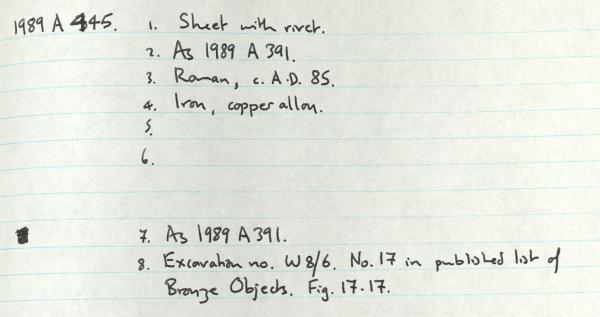 1989 A 445. 1. Sheet with rivet.
2. As 1989 A 391.
3. Roman, c. A.D. 85.
4. Iron, copper alloy.
5.
6.
7. As 1989 A 391.
8. Excavation no. W8/6. No. 17 in published list of
Bronze Objects. Fig. 17.17.